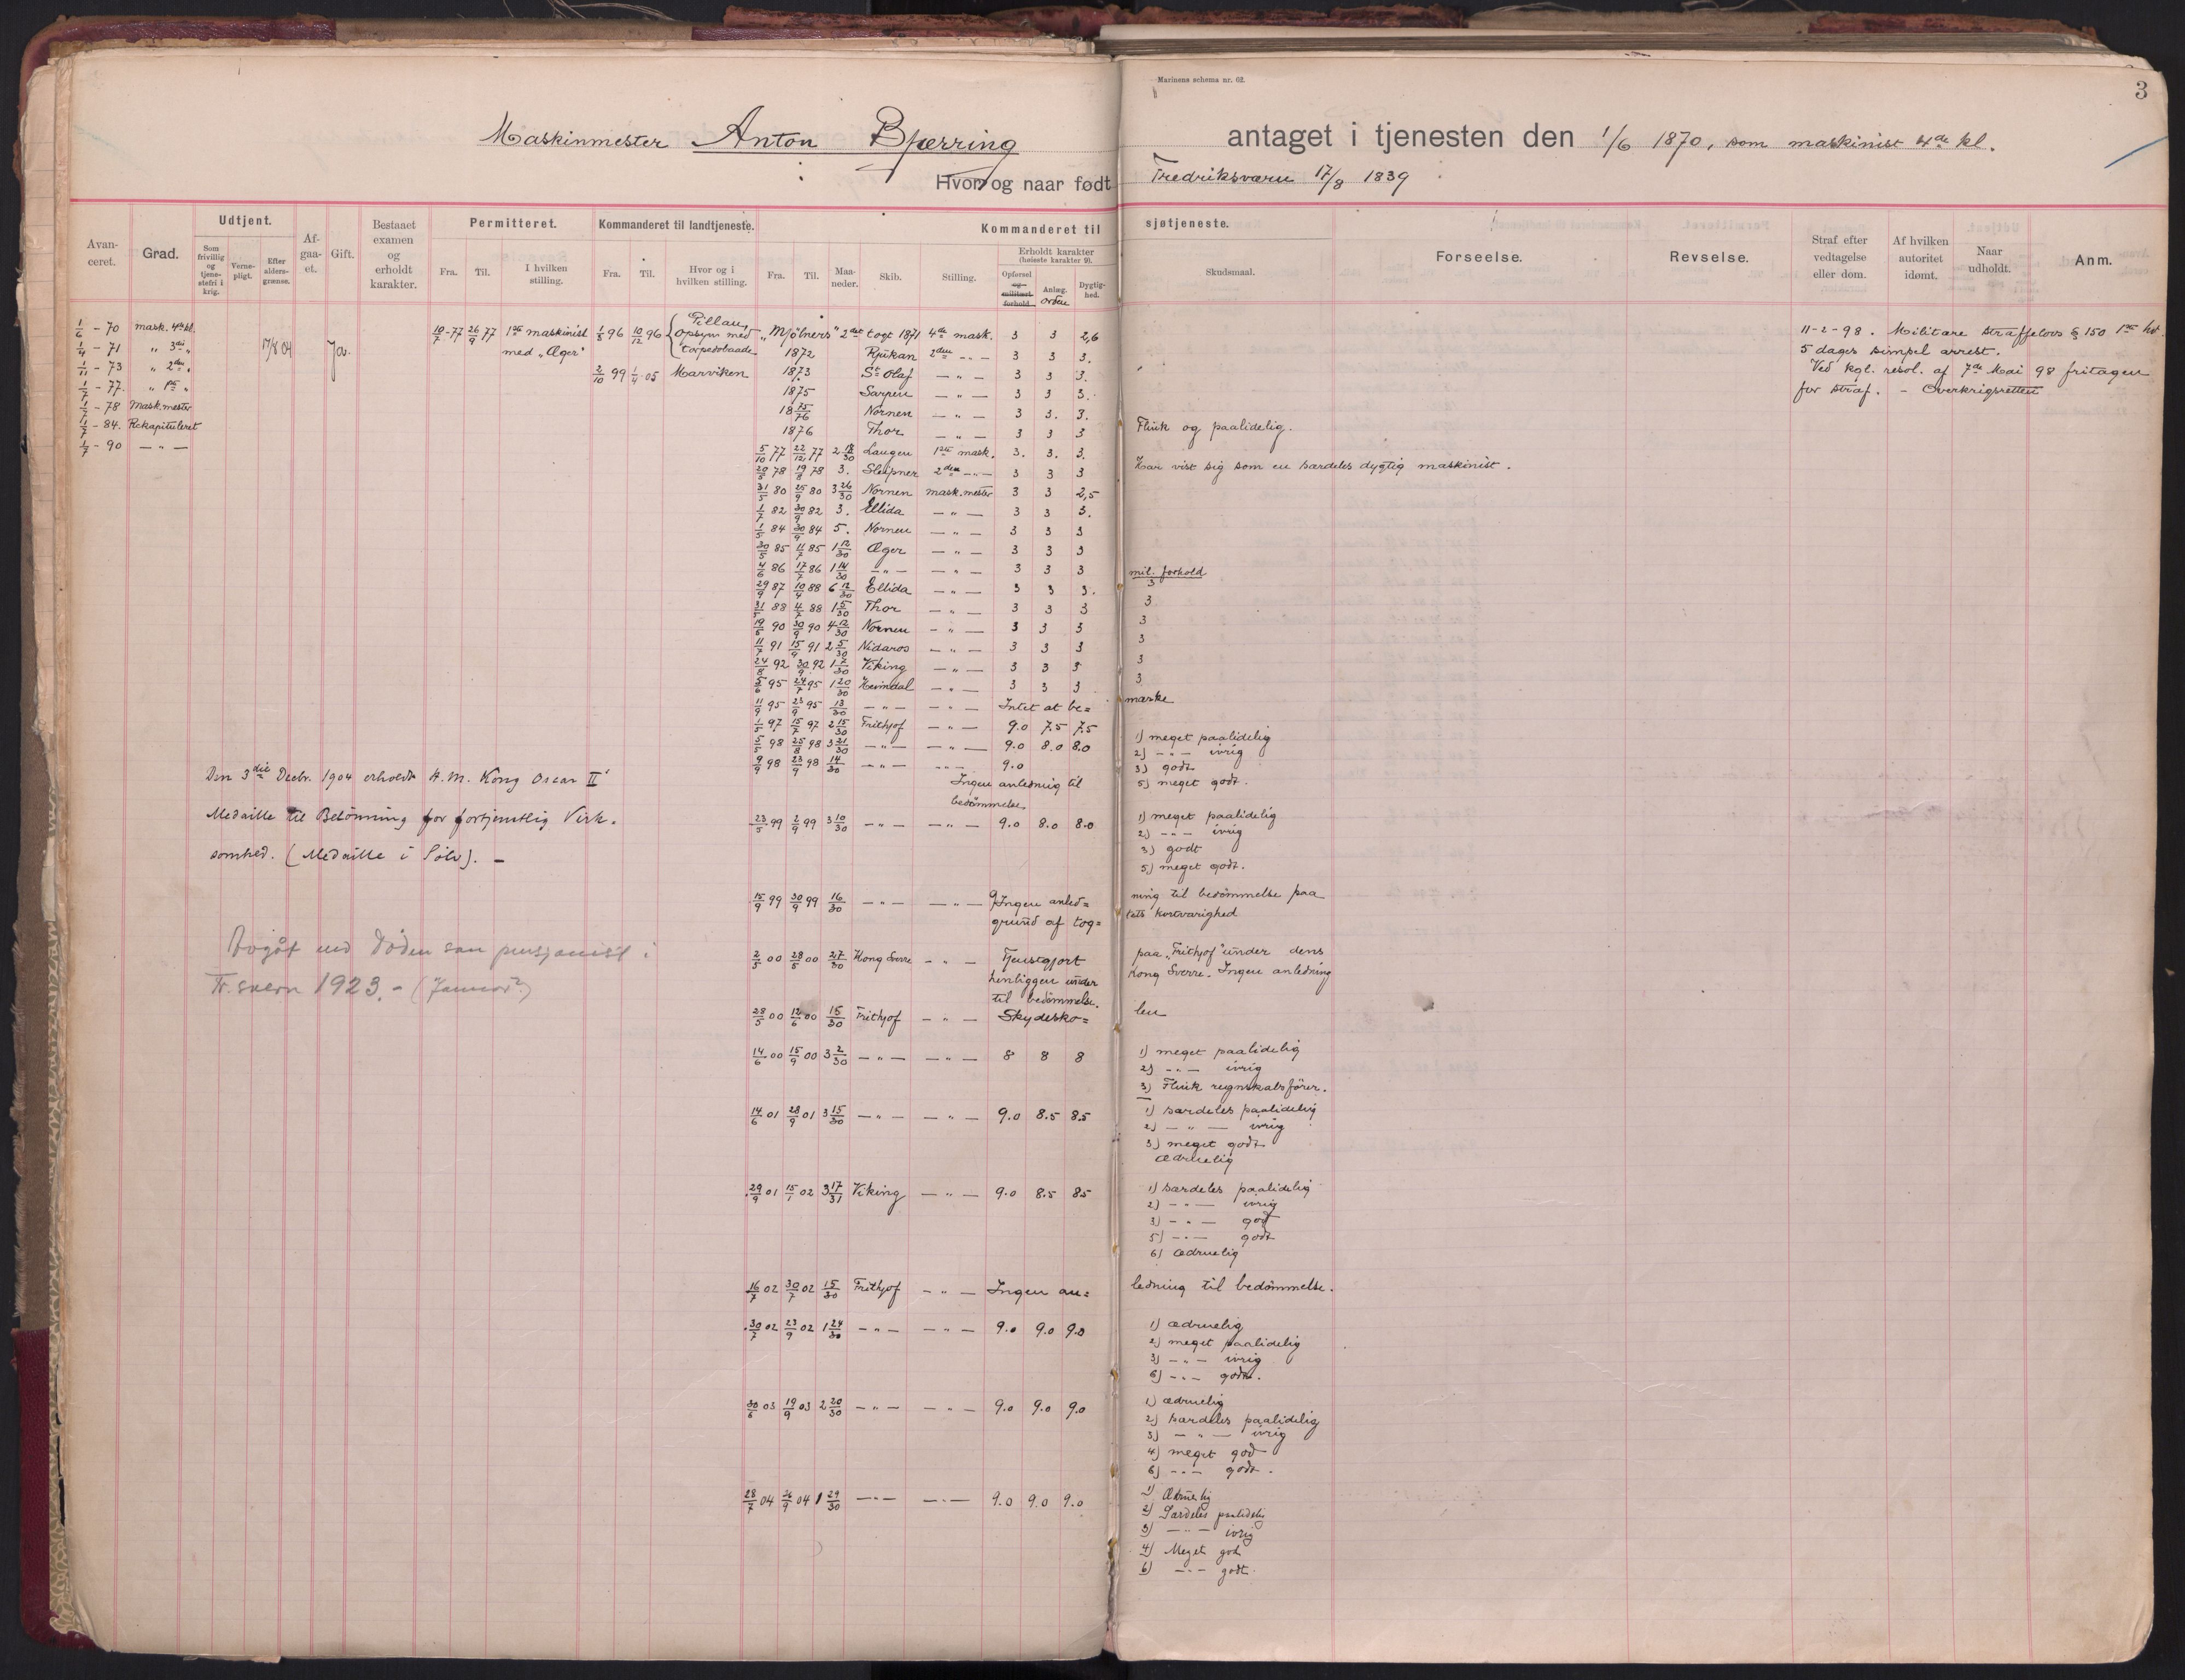 Marinens schema nr. 62.
3
Maskinmester Anton Bjerring antaget i tjenesten den 1/6 1870, som maskinist 4de kl.
Hvor og naar født Fredriksværn 17/8 1839
Avanceret. Grad. Udtjent. Som frivillig og tjenestefri i krig. Vernepligt. Efter aldersgrænse. Afgaaet. Gift. Bestaaet examen og erholdt karakter. Permitteret. Fra. Til. I hvilken stilling. Kommanderet til landtjeneste. Fra. Til. Hvor og i hvilken stilling. Kommanderet til sjøtjeneste. Fra. Til. Maaneder. Skib. Stilling. Erholdt karakter (høieste karakter 9). Opførsel og militært forhold. Anlæg. orden Dygtighed. Skudsmaal. Forseelse. Revselse. Straf efter vedtagelse eller dom. Af hvilken autoritet idømt. Naar udholdt. Anm.
1/6 - 70 mask. 4de kl.
1/4 - 71 " 3die "
1/11 - 73 " 2den "
1/7 - 77. " 1ste "
1/7 - 78 Mask.mester
1/7 - 84. Rekapituleret
1/7 - 90 — " —
17/8 04
Ja.
10/7 - 77 26/9 77 1ste maskinist
med „Æger"
1/5 96 10/12 96 Pillau, Opsyn med torpedobaade
2/10 99 1/4 05 Marviken
„Mjølners" 2det togt 1871 4de mask. 3 3 2,6
1872 Rjukan 2den - " - 3 3 3.
1873 St Olaf — " — 3 3 3.
1875 Sarpen — " — 3 3 3.
1875/76 Nornen — " — 3 3. 3.
1876 Thor — " — 3 3 3 Flink og paalidelig.
5/10 77 22/12 77 2 18/30 Laugen 1ste mask. 3. 3. 3.
20/5 78 19/8 78 3. Sleipner 2den - " - 3 3 3 Har vist sig som en særdeles dygtig maskinist.
31/5 80 25/9 80 3 26/30 Nornen mask.mester 3 3 2,5
1/7 82 30/9 82 3. Ellida — " — 3 3 3.
1/5 84 30/9 84 5. Nornen — " — 3 3 3
30/5 85 11/7 85 1 12/30 Æger — " — 3 3 3
4/6 86 17/7 86 1 14/30 — " — — " — 3 3 3 mil. forhold
29/9 87 10/4 88 6 12/30 Ellida — " — 3 3 3. 3
31/5 88 4/7 88 1 5/30 Thor — " — 3 3 3 3
19/5 90 30/9 90 4 12/30 Nornen — " — 3 3 3 3
11/7 91 15/9 91 2 5/30 Nidaros — " — 3 3 3 3
24/8 92 30/9 92 1 7/30 Viking — " — 3 3 3 3
5/6 95 24/7 95 1 20/30 Heimdal — " — 3 3 3 3
11/9 95 23/9 95 13/30 — " — — " — Intet at be= mærke
1/5 97 15/7 97 2 15/30 Frithjof — " — 9.0 7.5 7.5 1) meget paalidelig
5/5 98 25/8 98 3 21/30 — " — — " — 9.0 8.0 8.0 2) — " — ivrig
9/9 98 23/9 98 14/30 — " — — " — 9.0 3) godt
Ingen anledning til 5) meget godt.
bedømmelse
23/5 99 2/9 99 3 10/30 — " — — " — 9.0 8.0 8.0 1) meget paalidelig
2) — " — ivrig
3) godt
5) meget godt.
15/9 99 30/9 99 16/30 — " — — " — 9 Ingen anled= ning til bedømmelse paa
grund af tog= tets kortvarighed
2/5 00 28/5 00 27/30 Kong Sverre — " — Tjenstgjort paa „Frithjof" under dens
henliggen under Kong Sverre. Ingen anledning
til bedømmelse.
28/5 00 12/6 00 15/30 Frithjof — " — Skydesko= len
14/6 00 15/9 00 3 2/30 — " — — " — 8 8 8 1) meget paalidelig
2) — " — ivrig
3) Flink regnskabsfører.
14/6 01 28/9 01 3 15/30 — " — — " — 9.0 8.5 8.5 1) særdeles paalidelig
2) — " — ivrig
3) meget godt
ædruelig
29/9 01 15/1 02 3 17/31 Viking — " — 9.0 8.5 8.5 1) særdeles paalidelig
2) — " — ivrig
3) — " — god
5) — " — godt
6) ædruelig
16/7 02 30/7 02 15/30 Frithjof — " — Ingen an= ledning til bedømmelse.
30/7 02 23/9 02 1 24/30 — " — — " — 9.0 9.0 9.0 1) ædruelig
2) meget paalidelig
3) — " — ivrig
6) — " — godt.
30/6 03 19/9 03 2 20/30 — " — — " — 9.0 9.0 9.0 1) ædruelig
2) særdeles paalidelig
3) — " — ivrig
4) meget god
6) — " — godt.
28/7 04 26/9 04 1 29/30 — " — — " — 9.0 9.0 9.0 1) Ædruelig
2) Særdeles paalidelig
3) — " — ivrig
4) Meget god
6) — " — godt.
11-2-98. Militære straffelovs § 150 1ste led
5 dages simpel arrest.
Ved kgl. resol. af 7de Mai 98 fritagen
for straf. - Overkrigsretten
Den 3die Decbr. 1904 erholdt H. M. Kong Oscar II's
Medaille til Belønning for fortjenstlig Virk=
somhed. (Medaille i Sølv). —
Avgåt ved døden som pensjonist i
Fr.svern 1923. - (Januar?)